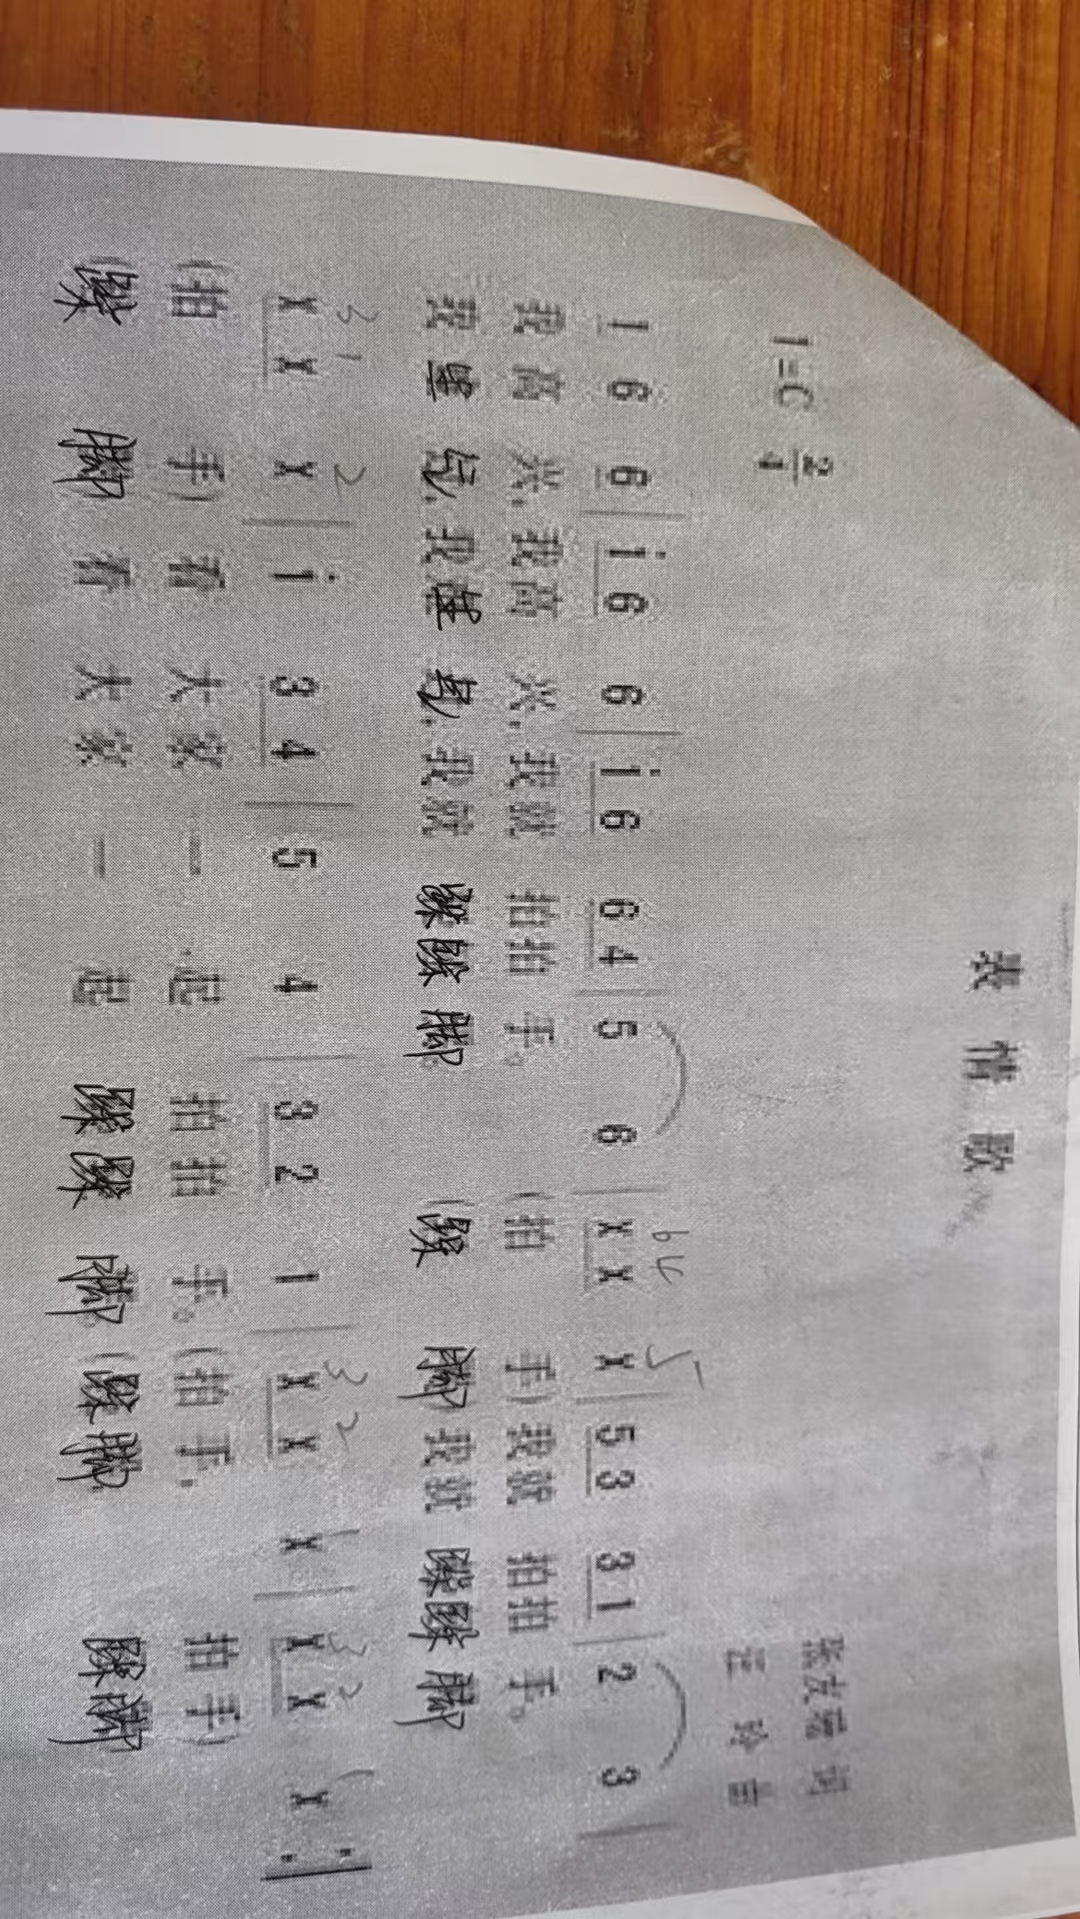 表情歌
1=C 2/4
张友珊 词
汪 玲 曲
1 6 6 | i 6 6 | i 6 6 4 | 5 6 | X X X | 5 3 3 1 | 2 3 |
6 4 5
我高 兴，我高 兴，我就 拍拍 手。 （拍 手）我就 拍拍 手。
我生 气，我生 气，我就 跺跺 脚。 （跺 脚 我就 跺跺 脚
X X X | i 3 4 | 5 4 | 3 2 1 | X X X | X X X :|
3 1 2 3 2 1 3 2 1
（拍 手）看 大家 一 起 拍拍 手。（拍手， 拍手）
（跺 脚 看 大家 一 起 跺跺 脚。（跺脚， 跺脚